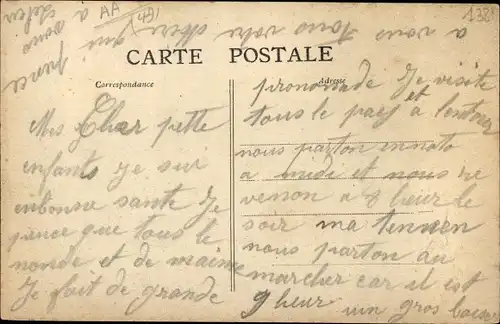 AA
138
a vous tous votre mere qui
a vous
CARTE POSTALE
Correspondance
Adresse
Mes Cher petite
enfants Je sui
enbonne sante Je
pance que tous le
monde et de maime
Je fait de grande
pronomade Je visite
tous le pay et a lentour
nous parton ennoto
a midi et nous re
venon a 8 heur le
soir ma tennen
nous parton au
marcher car il est
9 heur
un gros baiser